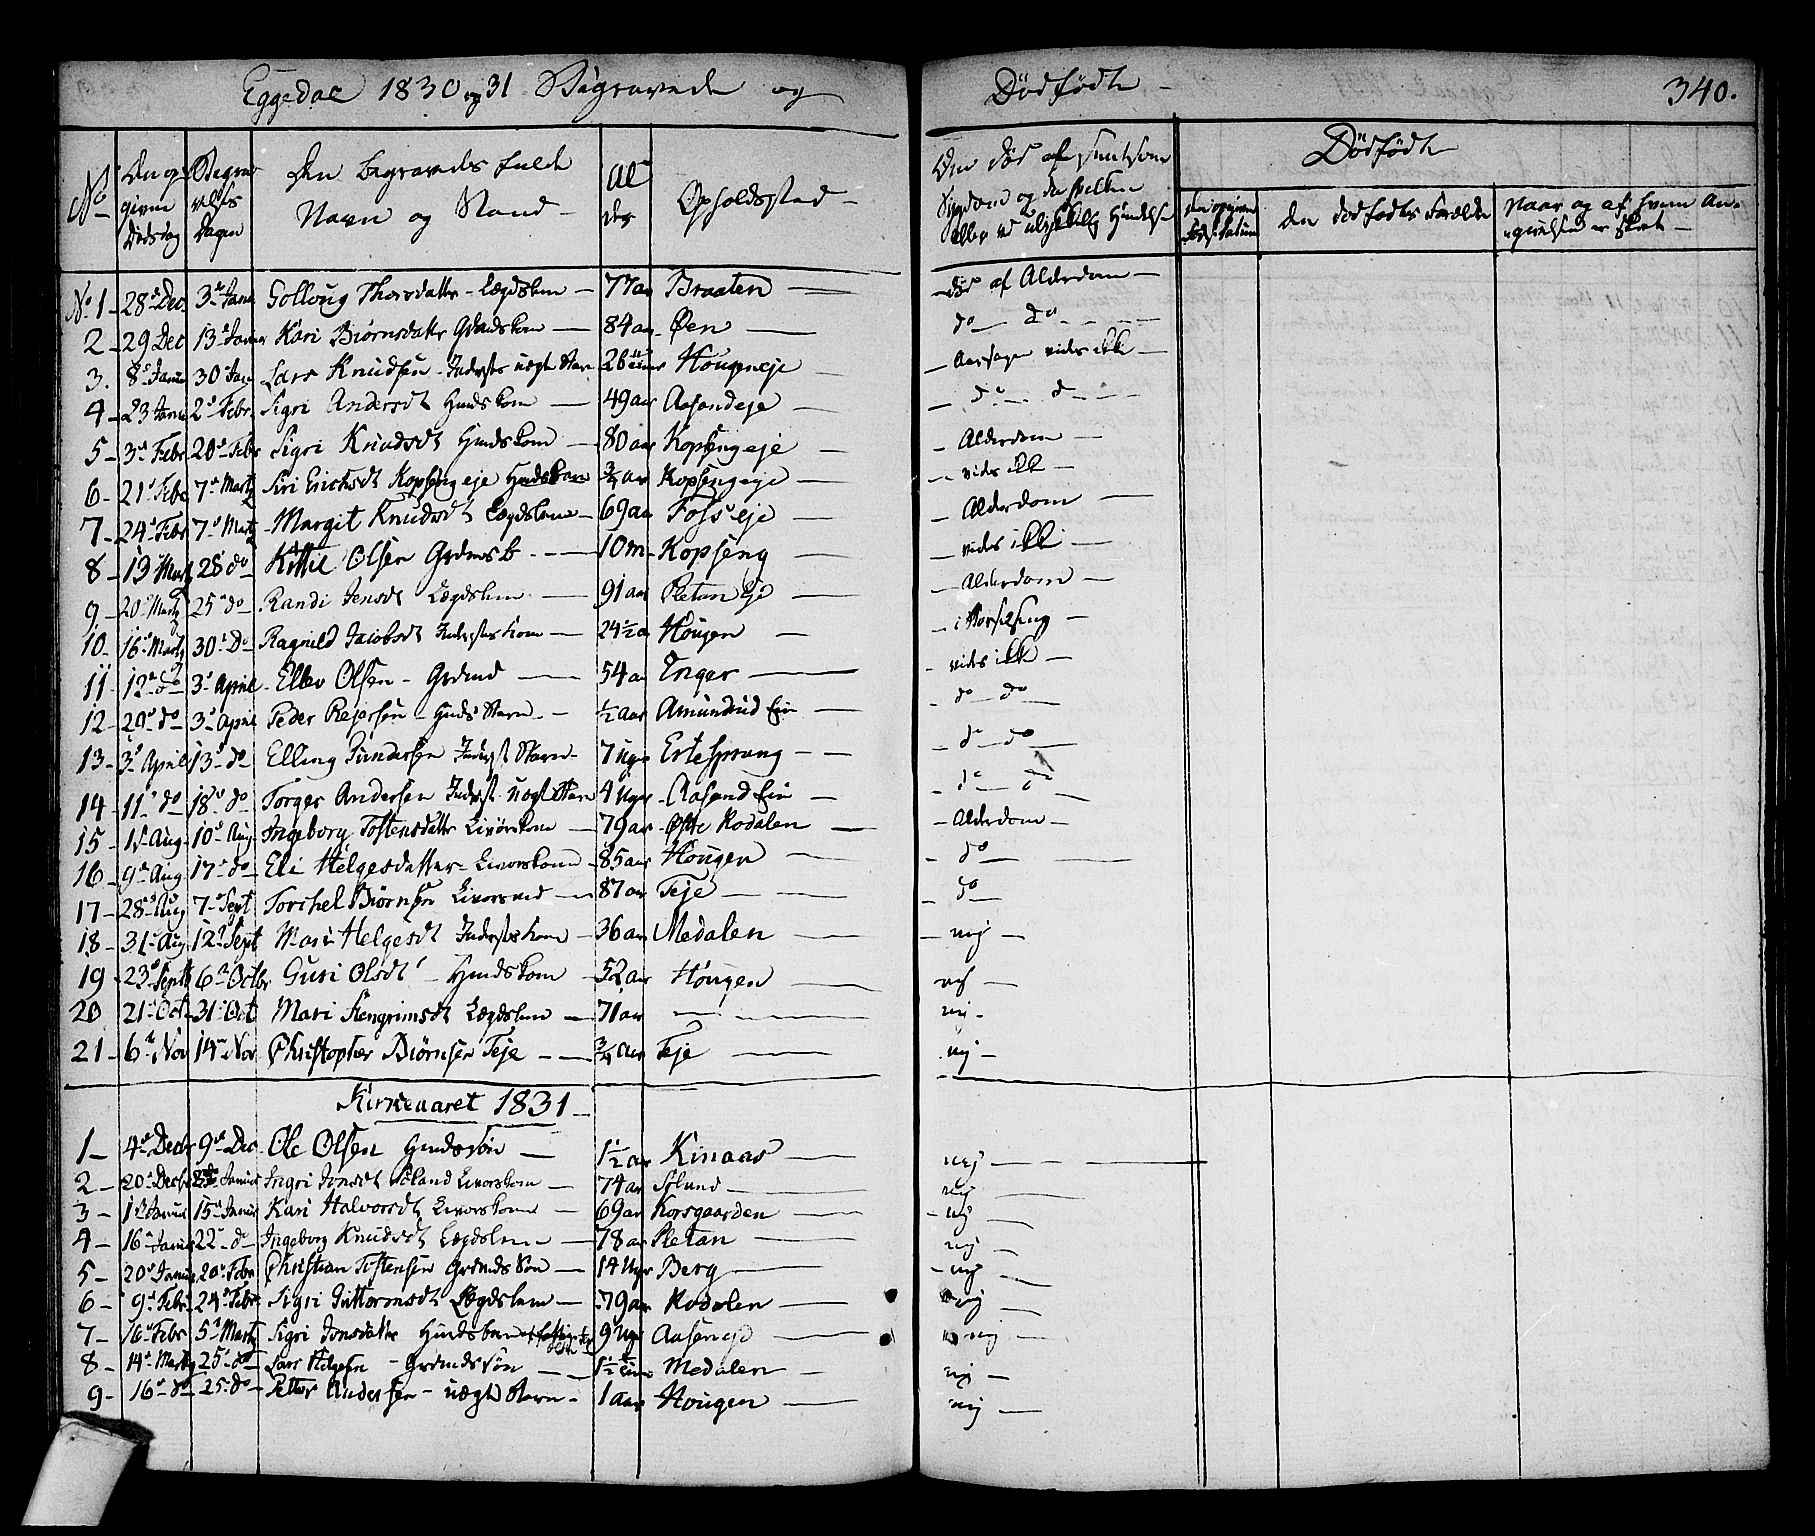 Eggedal 1830 og 31 Begravede og Dødfødte
340.
No
Den op givne Dødsdag
Begra velses Dagen
Den Begravedes fulde Navn og Stand
Al der
Opholdsstad
Den død af smitsom Sygdom og da hvilken eller ved ulykkelig Hændelse
Dødfødte
den opgivne Føds. datum
den dødfødtes Forældre
Naar og af hvem Angivelsen er skeet
No 1 28de Dec. 3de Janu Golloug Thorsdatter Lægdslem 77 aar Braaten død af Alderdom
2 29 Dec 13de Januar Kari Biørnsdatter Grdmdskone 84 aar Øen do do
3. 8de Janu 30 Jan Lars Knudsen Inderstes uægte Barn 26 Hougeneje Aarsagen vides ikke
4 23 Janu 2de Febr Sigri Andersdt Huuskone 49 aar Aasandeje do do
5 3de Febr 20de Febr Sigri Knudsdt Huuskone 80 aar Kopsengeje Alderdom
6 21de Febr 7de Martz Siri Erichsdt Kopsengeje Huusbarn 3/4 aar Kopsengeje vides ikke
7 24de Febr 7de Martz Margit Knudsdt Lægdslem 69 aar Fosseje Alderdom
8 13 Martz 28 do Kittil Olsen Grdmdsb. 10 m Kopseng vides ikke
9 20de Martz 25de do Randi Jensdt Lægdslem 91 aar Pletan Eje Alderdom
10 16de Martz 30de Do Ragnild Jacobsdt Inderstes Kone 24 1/2 a Hougen i Barselseng
11 12de do 3de April Ellev Olsen Grdmd 54 aar Enger vides ikke
12 29de do 3de April Peder Rejersen Huus Barn 1/2 aar Amundrud Eie do do
13 3de April 13de do Elling Gundersen Inderst Barn 7 Uger Ertesprang do do
14 11de do 18de do Torger Andersen Inderst uægt Barn 4 Uger Aasand Eie do do
15 1ste Aug 10de Aug Ingeborg Tostensdatter Livørskone 79 aar Østre Rodalen Alderdom
16 9de Aug 17de do Eli Helgesdatter Livørskone 85 aar Hougen do
17 28de Aug 7de Sept Torchel Biørnsen Livørsmd 87 aar Teje do
18 31te Aug 12te Sept Mari Helgesdt Inderstes Kone 36 aar Medalen nej
19 23de Septb 6te Octbr Guri Olsdt Huuskone 52 aar Hougen nej
20 21de Oct 31te Oct Mari Stengrimsdt Lægdslem 71 aar nej
21 6te Nov 14de Nov Christopher Biørnsen Teje 3/4 aar Teje nej
Kirkeaaret 1831
1 4de Decbr 9de Dec Ole Olsen Huussøn 1 1/2 aar Kinaas nej
2 20de Decbr Januar Ingri Jonsdt Søland Livørskone 74 aar Søland nej
3 1ste Janu 15de Janu Kari Halvorsdt Livørskone 69 aar Korsgaarden nej
4 16de Janu 22de do Ingeborg Knudsdt Lægdslem 78 aar Pletan nej
5 20de Janu 20de Febr Christian Tostensen Grdmds Søn 14 Uger Berg nej
6 9de Febr 24de Febr Sigri Guttormsdt Lægdslem 79 aar Rodalen nej
7 16de Febr 5te Martz Sigri Jonsdatter Huusbarn 9 Ug Aaseneje nej
8 14de Martz 25de do Lars Helgesen Grdmdssøn 1 1/2 Medalen nej
9 16de do 25de do Petter Andersen uægte Barn 1 aar Hougen nej